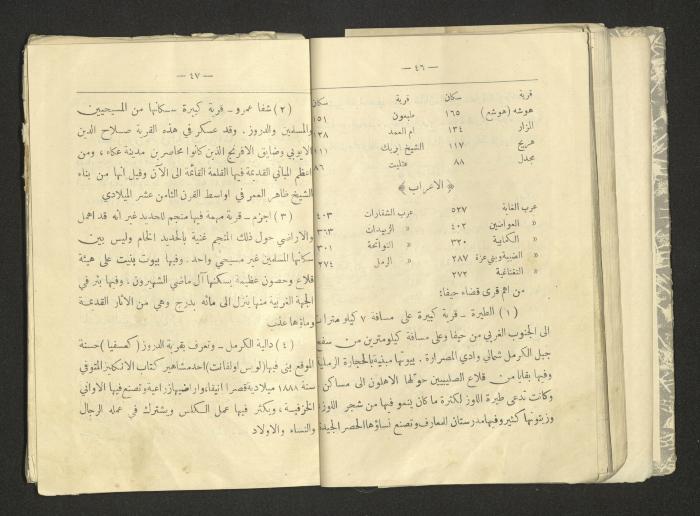 — ٤٦ —
قرية سكان قرية سكان
هوشه (هوشع) ١٦٥ طبعون ١٥١
المزار ١٣٤ ام العمد ١٢٨
هريج ١١٧ الشيخ ابريك ١١١
مجدل ٨٨ عتليت ٨٦
﴿ الاعراب ﴾
عرب الغابة ٥٢٧ عرب الشقارات ٤٠٣
» العواضين ٤٠٢ » الزبيدات ٣٦٣
» الكمابية ٣٢٠ » النواتحة ٣٠١
» الضبيه وبني عزة ٢٨٧ » الرمل ٢٧٤
» النغناغية ٢٧٢
من اهم قرى قضاء حيفا:
(١) الطيرة – قرية كبيرة على مسافة ٧ كيلو مترات
الى الجنوب الغربي من حيفا وعلى مسافة كيلو مترين من سفح
جبل الكرمل شمالي وادي المصرارة. بيوتها مبنية بالحجارة الرملية
وفيها بقايا من قلاع الصليبيين حولها الاهلون الى مساكن
وكانت تدعى طيرة اللوز لكثرة ما كان ينمو فيها من شجر اللوز
وزيتونها كثير وفيها مدرستان للمعارف وتصنع نساؤها الحصر الجيدة
— ٤٧ —
(٢) شفا عمرو – قرية كبيرة سكانها من المسيحيين
والمسلمين والدروز. وقد عسكر في هذه القرية صلاح الدين
الايوبي وضايق الافرنج الذين كانوا محاصرين مدينة عكاء، ومن
اعظم المباني القديمة فيها القلعة القائمة الى الآن وقيل انها من بناء
الشيخ ظاهر العمر في اواسط القرن الثامن عشر الميلادي
(٣) اجزم – قرية مهمة فيها منجم للحديد غير انه قد اهمل
والاراضي حول ذلك المنجم غنية بالحديد الخام وليس بين
سكانها المسلمين غير مسيحي واحد. وفيها بيوت بنيت على هيئة
قلاع وحصون عظيمة يسكنها آل ماضي الشهيرون، وفيها بئر في
الجهة الغربية منها ينزل الى مائه بدرج وهي من الآثار القديمة
وماؤها عذب
(٤) دالية الكرمل – وتعرف بقرية الدروز (كمسفيا) حسنة
الموقع بنى فيها (لويس اولفانت) احد مشاهير كتاب الانكليز المتوفي
سنة ١٨٨٨ ميلادية قصرا انيقا، واراضيها زراعية وتصنع فيها الاواني
الخزفية، ويكثر فيها عمل الكلس ويشترك في عمله الرجال
والنساء والاولاد